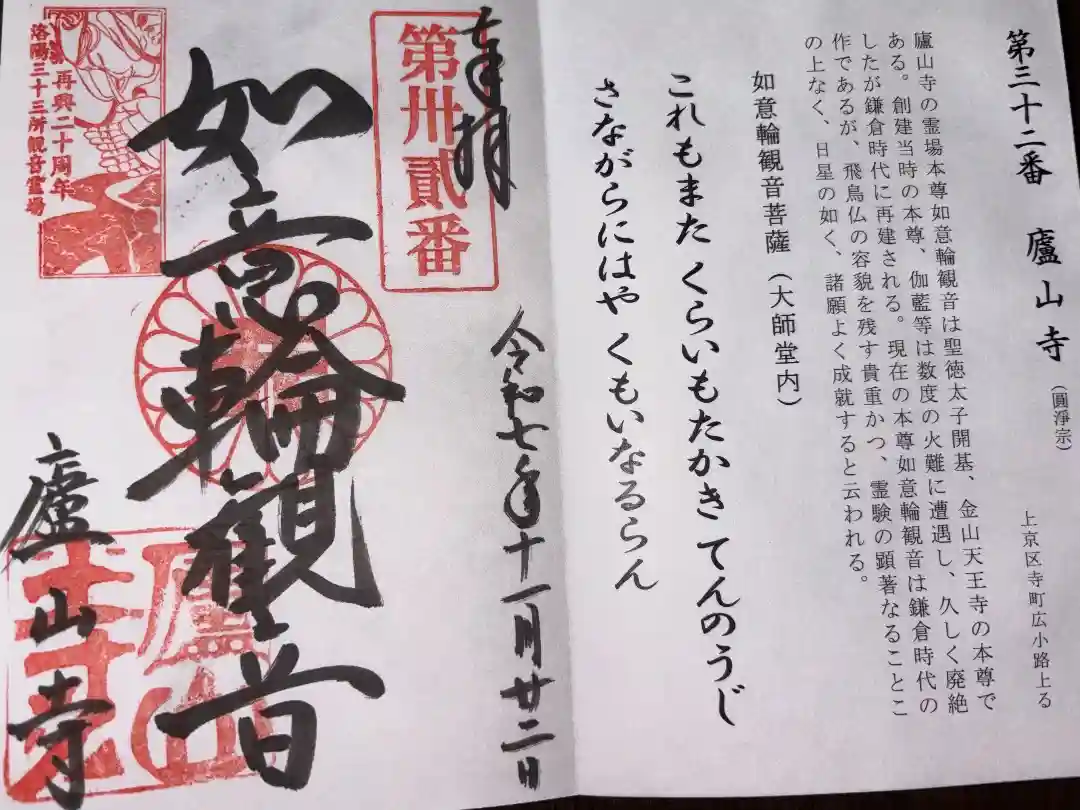 第三十二番 廬山寺 (圓淨宗)
上京区寺町広小路上る
廬山寺の霊場本尊如意輪観音は聖徳太子開基、金山天王寺の本尊で
ある。創建当時の本尊、伽藍等は数度の火難に遭遇し、久しく廃絶
したが鎌倉時代に再建される。現在の本尊如意輪観音は鎌倉時代の
作であるが、飛鳥仏の容貌を残す貴重かつ、霊験の顕著なることこ
の上なく、日星の如く、諸願よく成就すると云われる。
如意輪観音菩薩(大師堂内)
これもまた くらいもたかき てんのうじ
さながらにはや くもいなるらん
奉拝
令和七年十一月廿二日
第卅貳番
如意輪観音
廬山寺
再興二十周年
洛陽三十三所観音霊場
廬山
寺